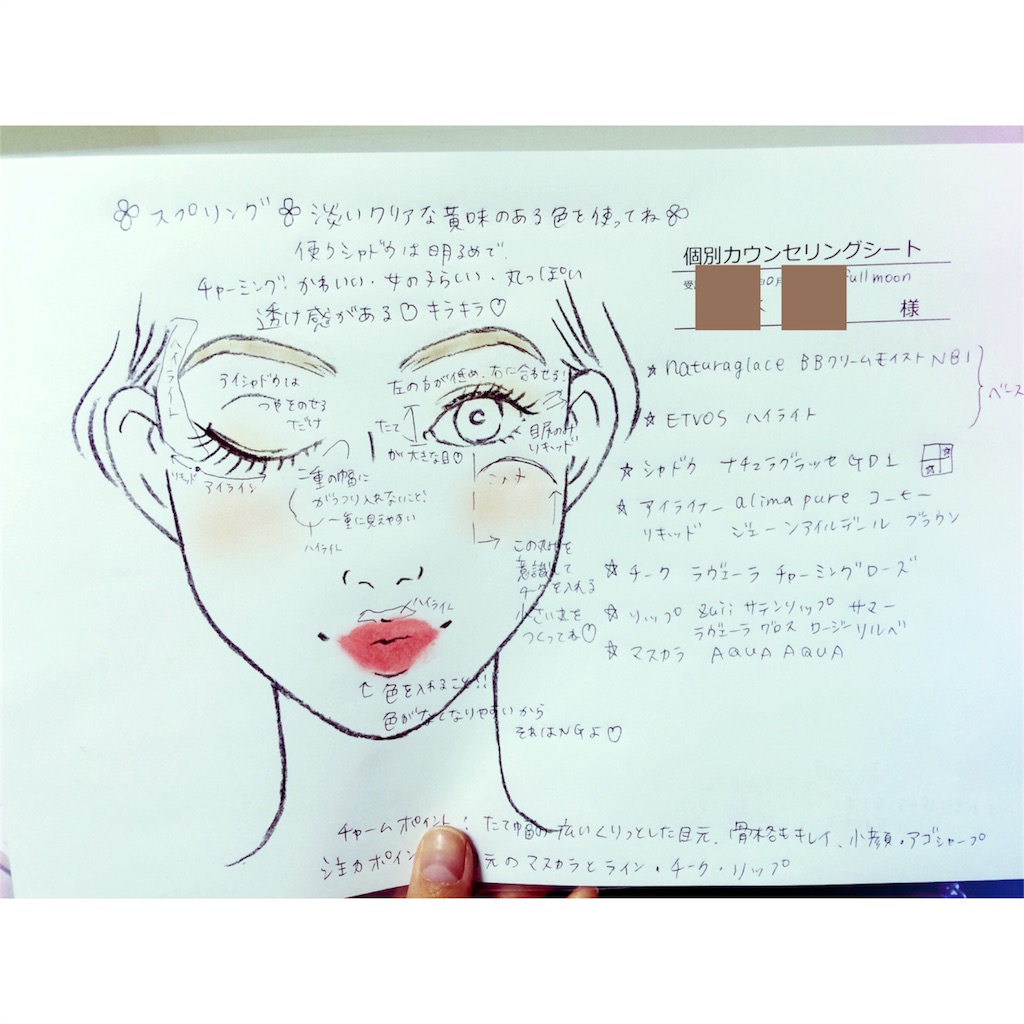 スプリング 淡いクリアな黄味のある色を使ってね
使うシャドウは明るめで、
チャーミング！かわいい・女のコらしい・丸っぽい
透け感がある♡キラキラ♡
個別カウンセリングシート
full moon
様
ハイライト
アイシャドウは
つやをのせる
だけ
左の方が低め、右に合わせる！
たて
が大きな目♡
目尻のみ
リキッド
リキッド
アイライン
二重の幅に
がっつり入れないこと！
一重に見えやすい
ハイライト
ココメ
この丸みを
意識して
チークを入れる
小さい丸を
つくってね♡
ハイライト
色を入れること!!
色がなくなりやすいから
それはNGよ♡
☆ naturaglace BBクリームモイスト NB1
☆ ETVOS ハイライト
ベース
☆ シャドウ ナチュラグラッセ GD1
☆ アイライナー alima pure コーヒー
リキッド ジェーンアイルデール ブラウン
☆ チーク ラヴェーラ チャーミングローズ
☆ リップ zuii サテンリップ サマー
ラヴェーラ グロス ロージーソルベ
☆ マスカラ AQUA AQUA
チャームポイント：たて幅の広いくりっとした目元、骨格もキレイ、小顔・アゴシャープ
注力ポイン 元のマスカラとライン・チーク・リップ